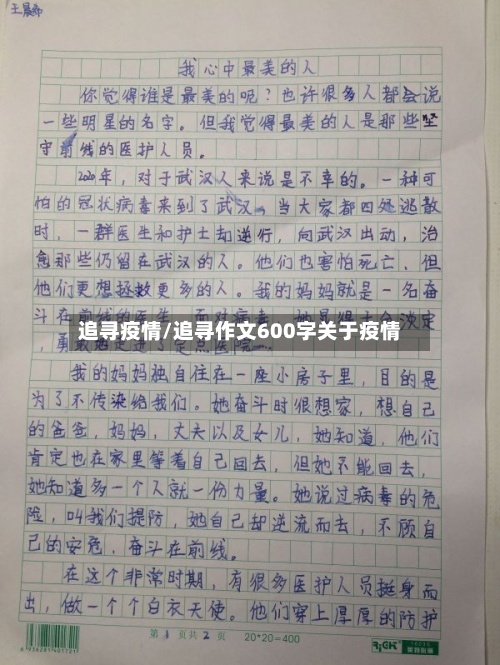 王晨希
我心中最美的人
你觉得谁是最美的呢？也许很多人都会说
一些明星的名字。但我觉得最美的人是那些坚
守前线的医护人员。
2020年，对于武汉人来说是不幸的。一种可
怕的冠状病毒来到了武汉。当大家都四处逃散
时，一群医生和护士却逆行，向武汉出动，治
愈那些仍留在武汉的人。他们也害怕死亡，但
他们更想拯救更多的人。我的妈妈就是一名奋
斗在前线的医生。面对病毒，她显得十分淡定
追寻疫情/追寻作文600字关于疫情
我的妈妈独自住在一座小房子里，目的是
为了不传染给我们。她奋斗时很想家，想自己
的爸爸，妈妈，丈夫以及女儿，她知道，他们
肯定也在家里等着自己回去，但她不能回去，
她知道多一个人就一份力量。她说过病毒的危
险，叫我们提防，她自己却逆流而去，不顾自
己的安危，奋斗在前线。
在这个非常时期，有很多医护人员挺身而
出，做一个个白衣天使。他们穿上厚厚的防护
第1页共2页 20*20=400